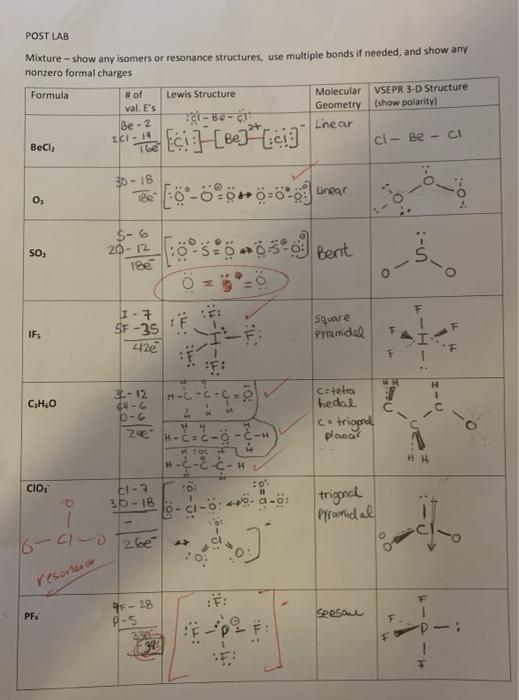 POST LAB
Mixture – show any isomers or resonance structures, use multiple bonds if needed, and show any
nonzero formal charges
Formula # of val. E's Lewis Structure Molecular Geometry VSEPR 3-D Structure (show polarity)
BeCl₂
Be - 2
2Cl - 14
16e⁻
:Cl - Be - Cl:
[:Cl:]⁻ [Be]²⁺ [:Cl:]⁻
Linear
Cl - Be - Cl
O₃
3O - 18
18e⁻
[:O - O = O ↔ O = O - O:]
Linear
O O O
SO₂
S - 6
2O - 12
18e⁻
[:O - S = O ↔ O = S - O:]
O = S = O
Bent
S
O O
IF₅
I - 7
5F - 35
42e⁻
:F:
:F I F:
:F: :F:
Square
Pyramidal
F
F I F
F F
C₃H₆O
3C - 12
6H - 6
O - 6
24e⁻
H - C - C - C = O
H - C = C - O - C - H
H - C - C - C - H
C = tetra
hedal
C = trigonal
planar
H H H
C C
C O
H H
ClO₃⁻
Cl - 7
3O - 18
26e⁻
O
O - Cl - O
resonance
:O:
O - Cl - O: ↔ :O - Cl - O:
↔ Cl
:O: O:
trigonal
Pyramidal
Cl
O O
PF₄⁻
4F - 28
P - 5
33e⁻
34
:F:
:F - P - F:
:F:
seesaw
F
F P - :
F
F